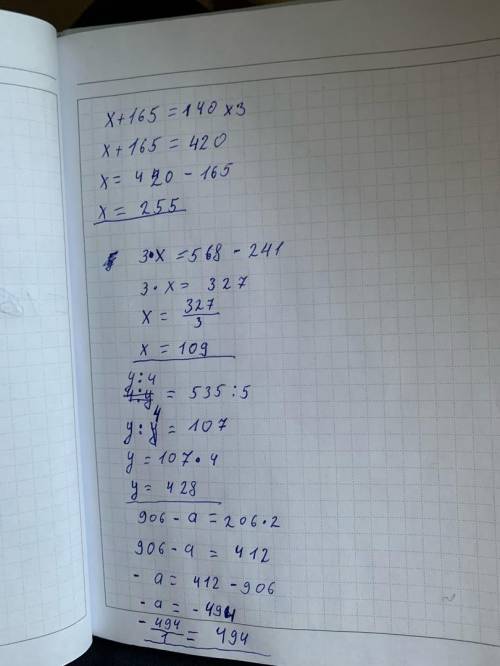 x+165=140x3
x+165=420
x=420-165
x= 255
3•x=568-241
3•x= 327
x= 327/3
x=109
y:4
= 535:5
y:4=107
y=107•4
y=428
906-a=206•2
906-a=412
-a=412-906
-a=-494
-494/1=494